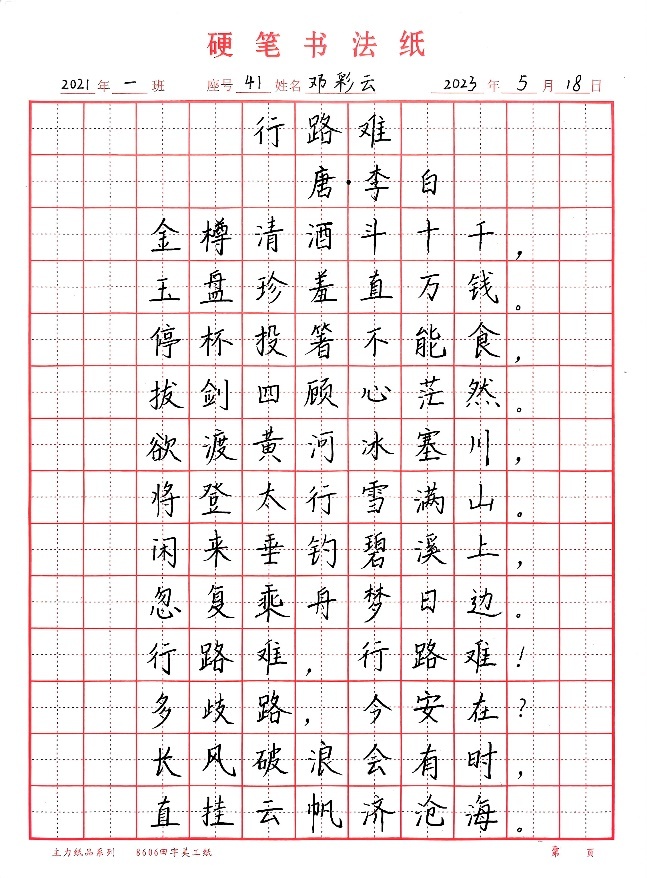 硬笔书法纸
2021年一班 座号41姓名邓彩云 2023年5月18日
行路难
唐·李白
金樽清酒斗十千，
玉盘珍羞直万钱。
停杯投箸不能食，
拔剑四顾心茫然。
欲渡黄河冰塞川，
将登太行雪满山。
闲来垂钓碧溪上，
忽复乘舟梦日边。
行路难，行路难！
多歧路，今安在？
长风破浪会有时，
直挂云帆济沧海。
主力纸品系列 8606田字 第 页